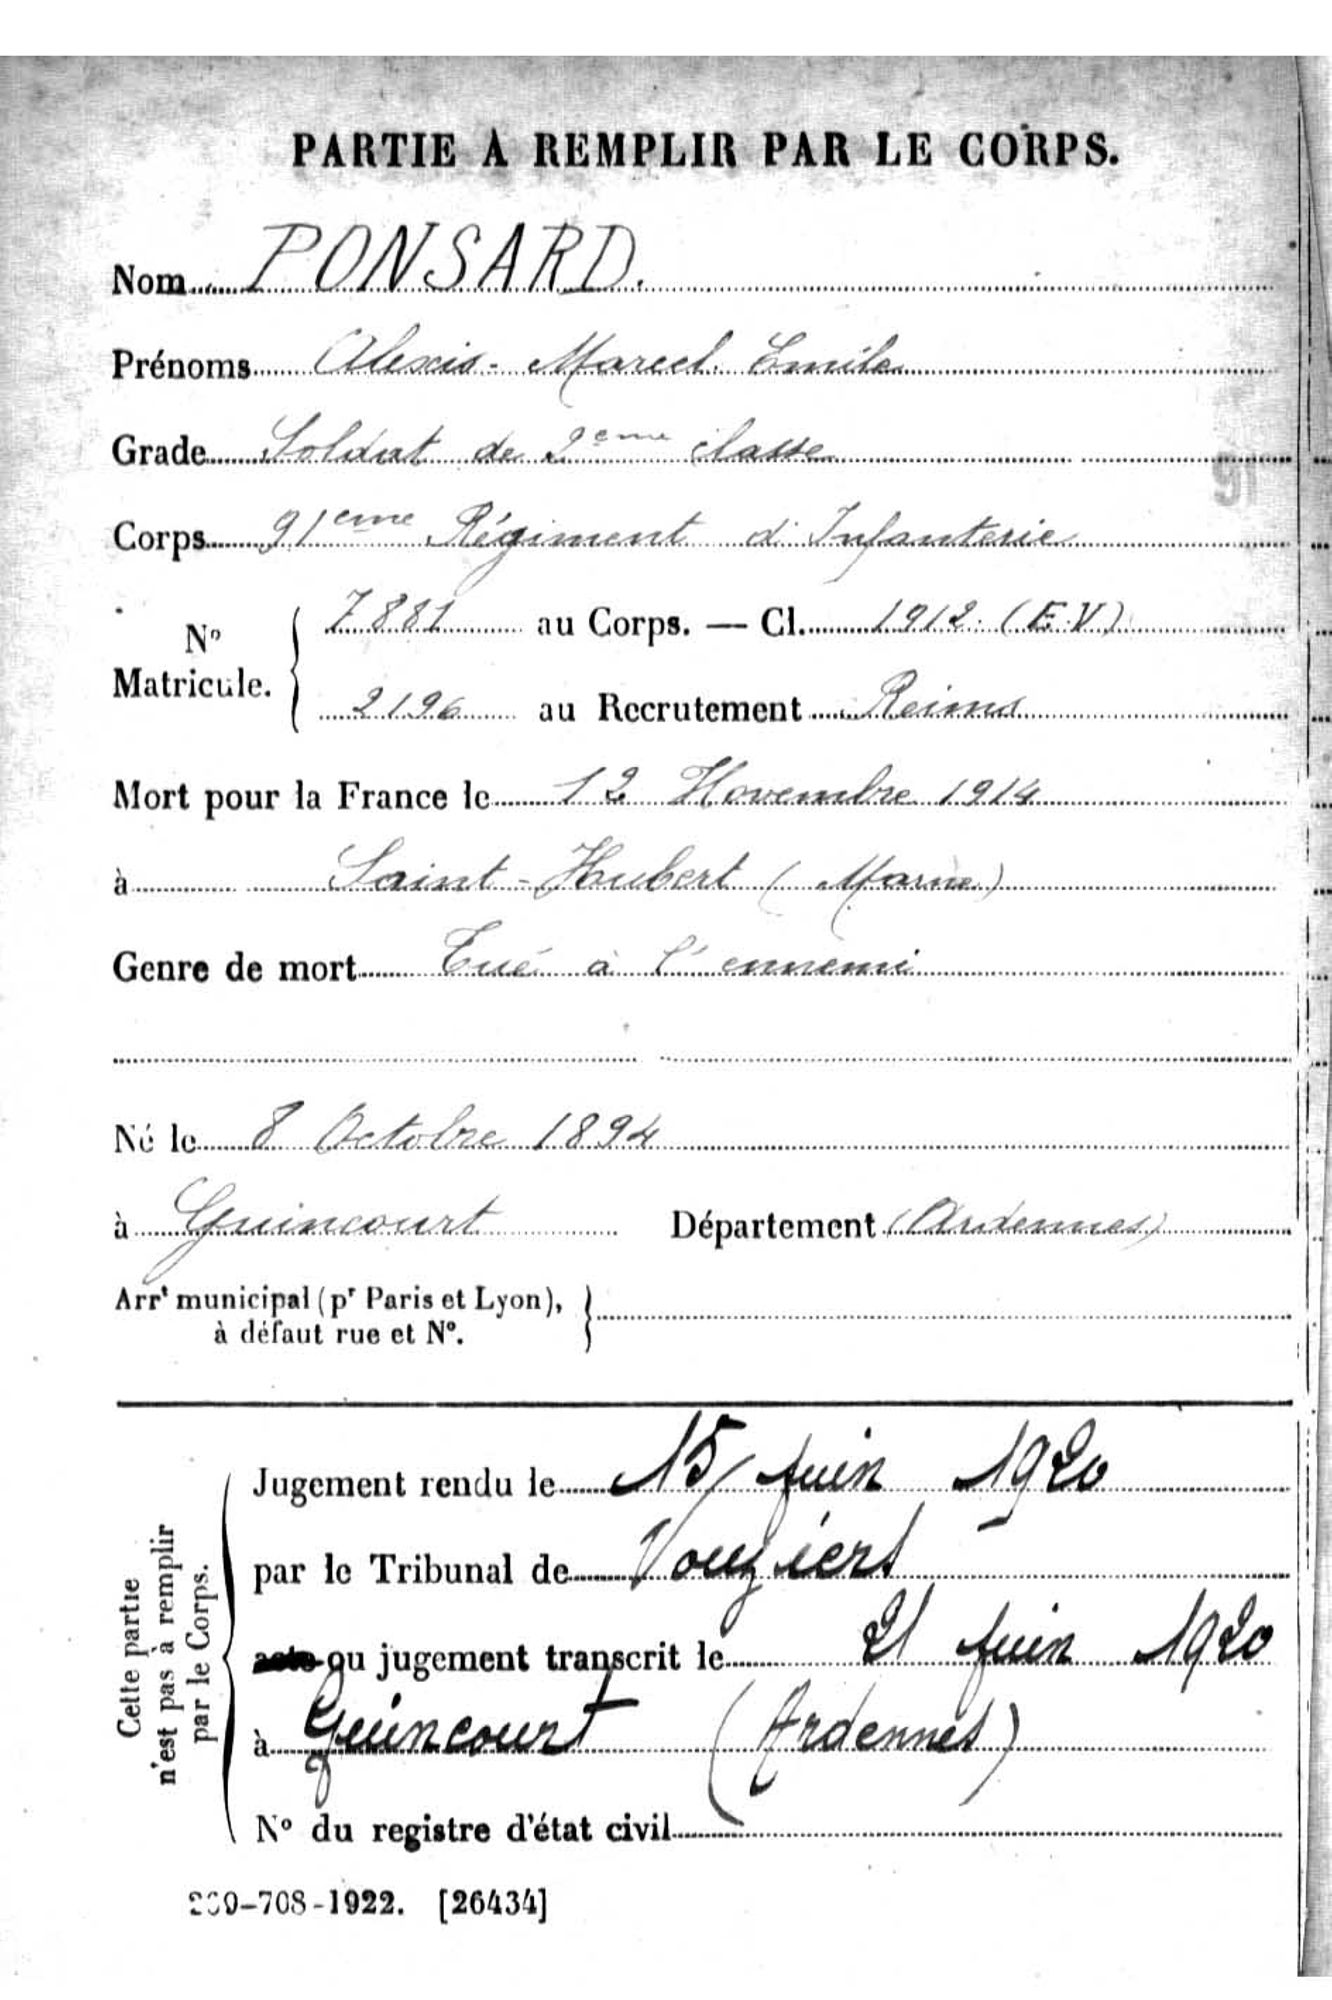 PARTIE A REMPLIR PAR LE CORPS.
Nom PONSARD.
Prénoms Alexis-Marcel Emile
Grade Soldat de 2eme classe
91
Corps 91eme Régiment d'Infanterie
No
Matricule.
7881 au Corps. — Cl. 1912. (E.V)
2196 au Recrutement Reims
Mort pour la France le 12 Novembre 1914
à Saint-Hubert (Marne)
Genre de mort Tué à l'ennemi
Né le 8 Octobre 1894
à Guincourt Département (Ardennes)
Arrt municipal (pr Paris et Lyon),
à défaut rue et No.
Cette partie
n'est pas à remplir
par le Corps.
Jugement rendu le 15 Juin 1920
par le Tribunal de Vouziers
acte ou jugement transcrit le 21 Juin 1920
à Guincourt (Ardennes)
No du registre d'état civil
-708-1922. [26434]